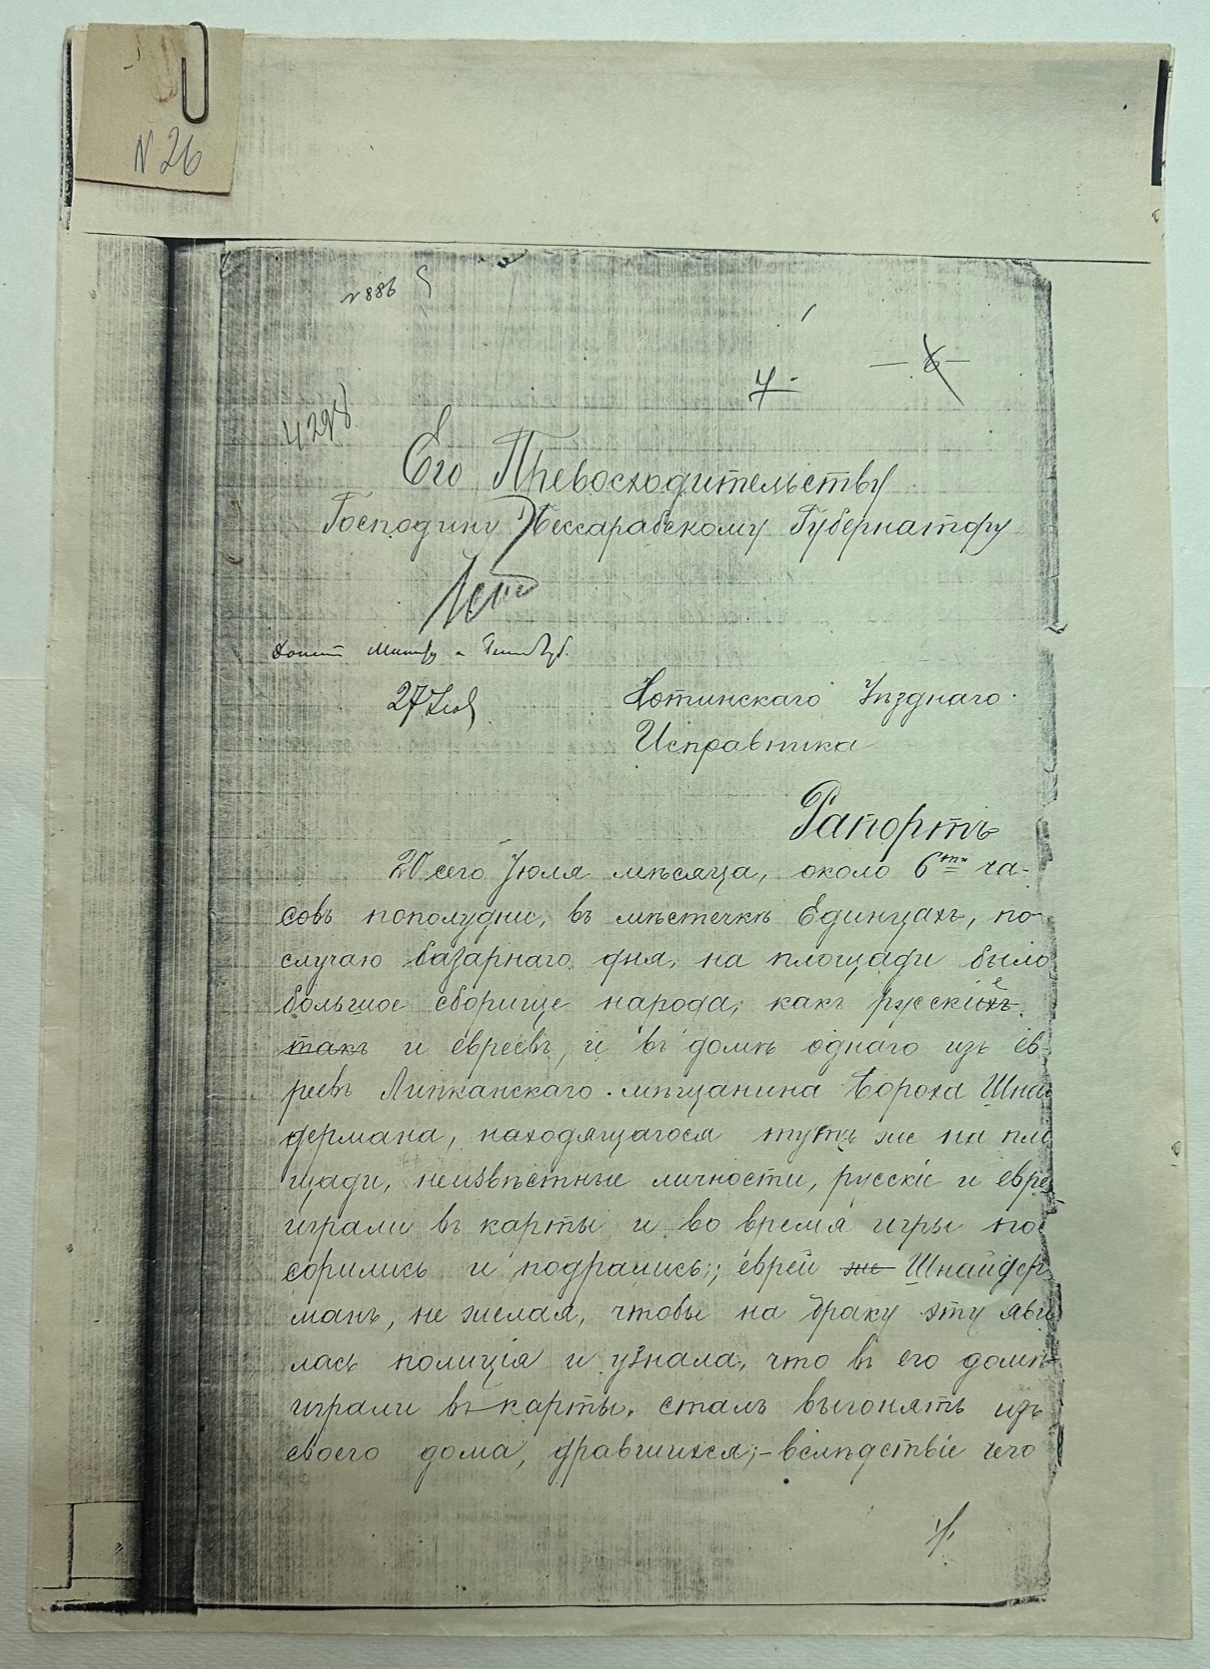 N 26
№ 886
4298
7.
6
Его Превосходительству
Господину Бессарабскому Губернатору
27 Июл
Хотинскаго Уѣзднаго
Исправника
Рапортъ
20 сего Іюля мѣсяца, около 6ти ча-
совъ пополудни, въ мѣстечкѣ Единцахъ, по
случаю базарнаго дня, на площади было
большое сборище народа, какъ русскихъ
такъ и евреевъ, и въ домѣ одного изъ ев-
реевъ Липканскаго мѣщанина Бороха Шнай
дермана, находящагося тутъ же на пло
щади, неизвѣстные личности, русскіе и евре
играли въ карты и во время игры по
сорились и подрались; еврей же Шнайдер
манъ, не желая, чтобы на драку эту яви
лась полиція и узнала, что въ его домѣ
играли въ карты, сталъ выгонять изъ
своего дома, дравшихся;- вслѣдствіе чего